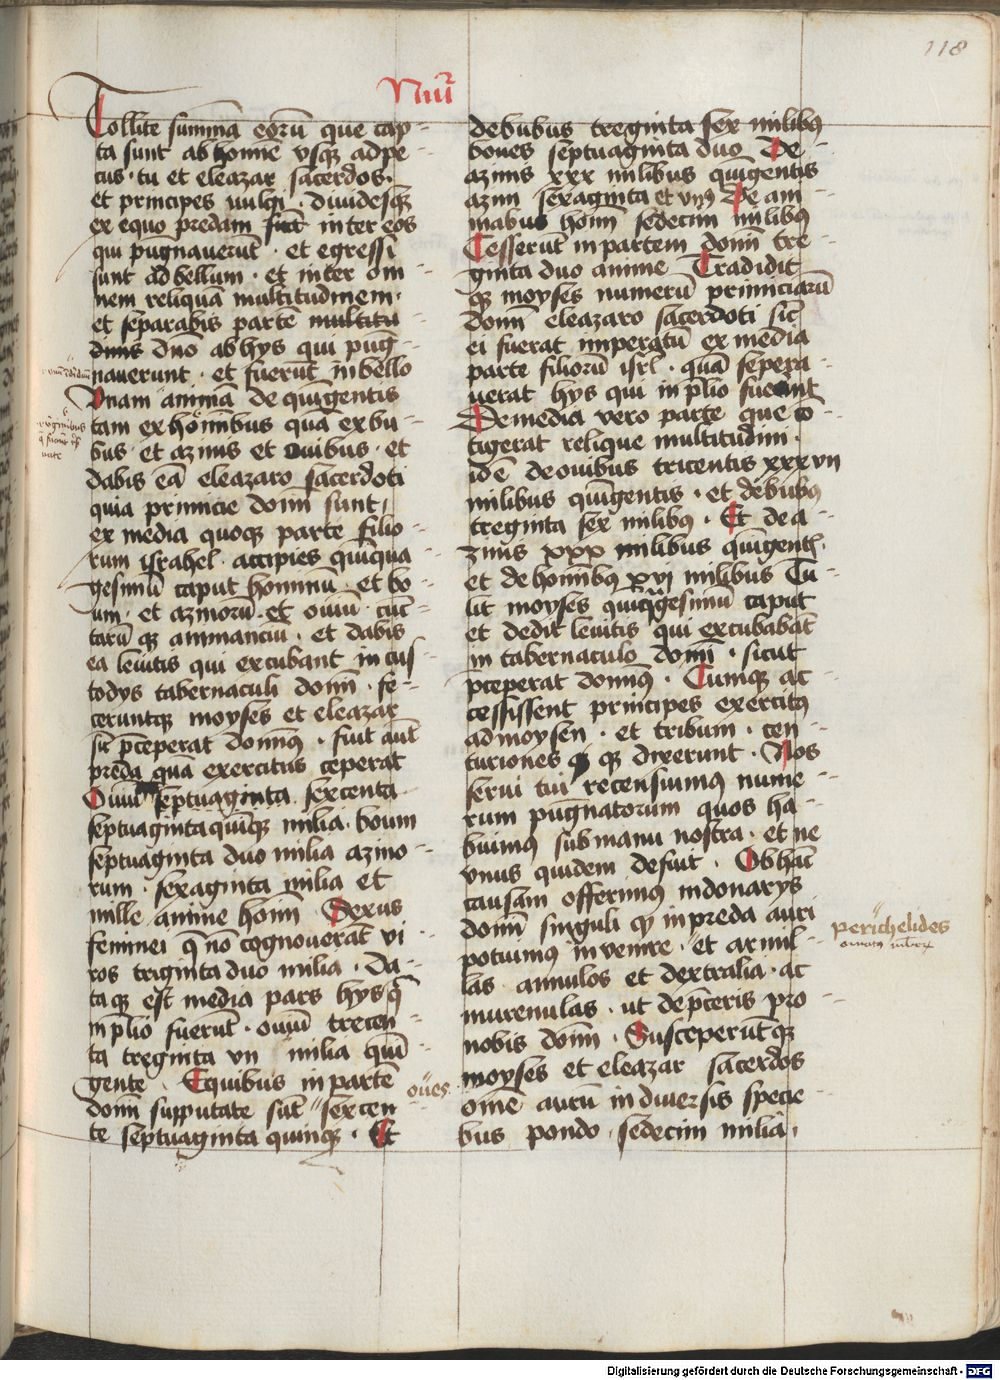 118
Tollite summā eorū que cap-
ta sunt ab homine vsq̄ ad pe-
cus · tu et eleazar sacerdos ·
et principes uulgi · diuidesq̄
ex equo predam inter eos
qui pugnauerūt · et egressi
sunt ad bellum · et inter om-
nem reliquā multitudinem ·
et separabis partē multitu
dinis dn̄o ab hys qui pug-
nauerunt · et fuerūt in bello
Vnam animā de quīgentis
tam ex hoīnibus quā ex bu-
bus · et azinis et ouibus · et
dabis eā eleazaro sacerdoti
quia primicie domī sunt
ex media quoq̄ parte filio-
rum israhel · accipies quīqua-
gesimū caput hominū · et bo-
um · et azinorū · et ouiū · cūc-
tarū q̄ animanciū · et dabis
ea leuitis qui excubant in cus-
todys tabernaculi domī · fe-
ceruntq̄ moyses et eleazar
sic p̄ceperat domīq · fuit aūt
preda quā exercitus ceperat
Ouiū septuaginta sexcenta
septuaginta quīq̄ milia · boum
septuaginta duo milia azino-
rum · sexaginta milia et
mille anime homī Sexus
feminei q̄ nō cognouerāt vi-
ros triginta duo milia · Da-
taq̄ est media pars hys q̄
in p̄lio fuerūt · ouiū trecen-
ta treginta vii milia quī-
gente · E quibus in partē
domī supputate sūt sexcen
te septuaginta quinq̄ · Et
oues
de bubus treginta sex milibꝫ
boues septuaginta duo De
azinis xxx milibus quīgentis
azini sexaginta et vnꝫ De ani
mabus homī sedecim milibꝫ
Cesserūt in partem domī tre-
ginta duo anime Tradidit
q̄ moyses numerū primiciarū
domī eleazaro sacerdoti sic̄
ei fuerat imperatū ex media
parte filiorū isrl · quā sepera-
uerat hys qui in p̄lio fuerūt
De media vero parte que cō-
tigerat relique multitudini ·
id ē de ouibus tricentis xxxvii
milibus quīgentis · et de bubꝫ
treginta sex milibꝫ · Et de a-
zinis xxx milibus quīgent̄ ·
et de hominibꝫ xvi milibus Tu-
lit moyses quīq̄gesimū caput
et dedit leuitis qui excubabāt
in tabernaculo domī · sicut
p̄ceperat domīq · Cumq̄ ac-
cessissent principes exercitꝫ
ad moysen · et tribuni · cen-
turiones q̄ dixerunt · Nos
serui tui recensuimꝫ nume-
rum pugnatorum quos ha-
buimꝫ sub manu nostra · et ne
vnus quidem defuit · Ob hāc
causam offerimꝫ in donarys
domī singuli q̄ in preda auri
potuimꝫ inuenire · et armil-
las annulos et dextralia · ac
murenulas · ut dep̄ceris pro
nobis domī · Susceperūtq̄
moyses et eleazar sacerdos
omē aurū in diuersis specie-
bus pondo · sedecim milia ·
perichelides
Digitalisierung gefördert durch die Deutsche Forschungsgemeinschaft - DFG